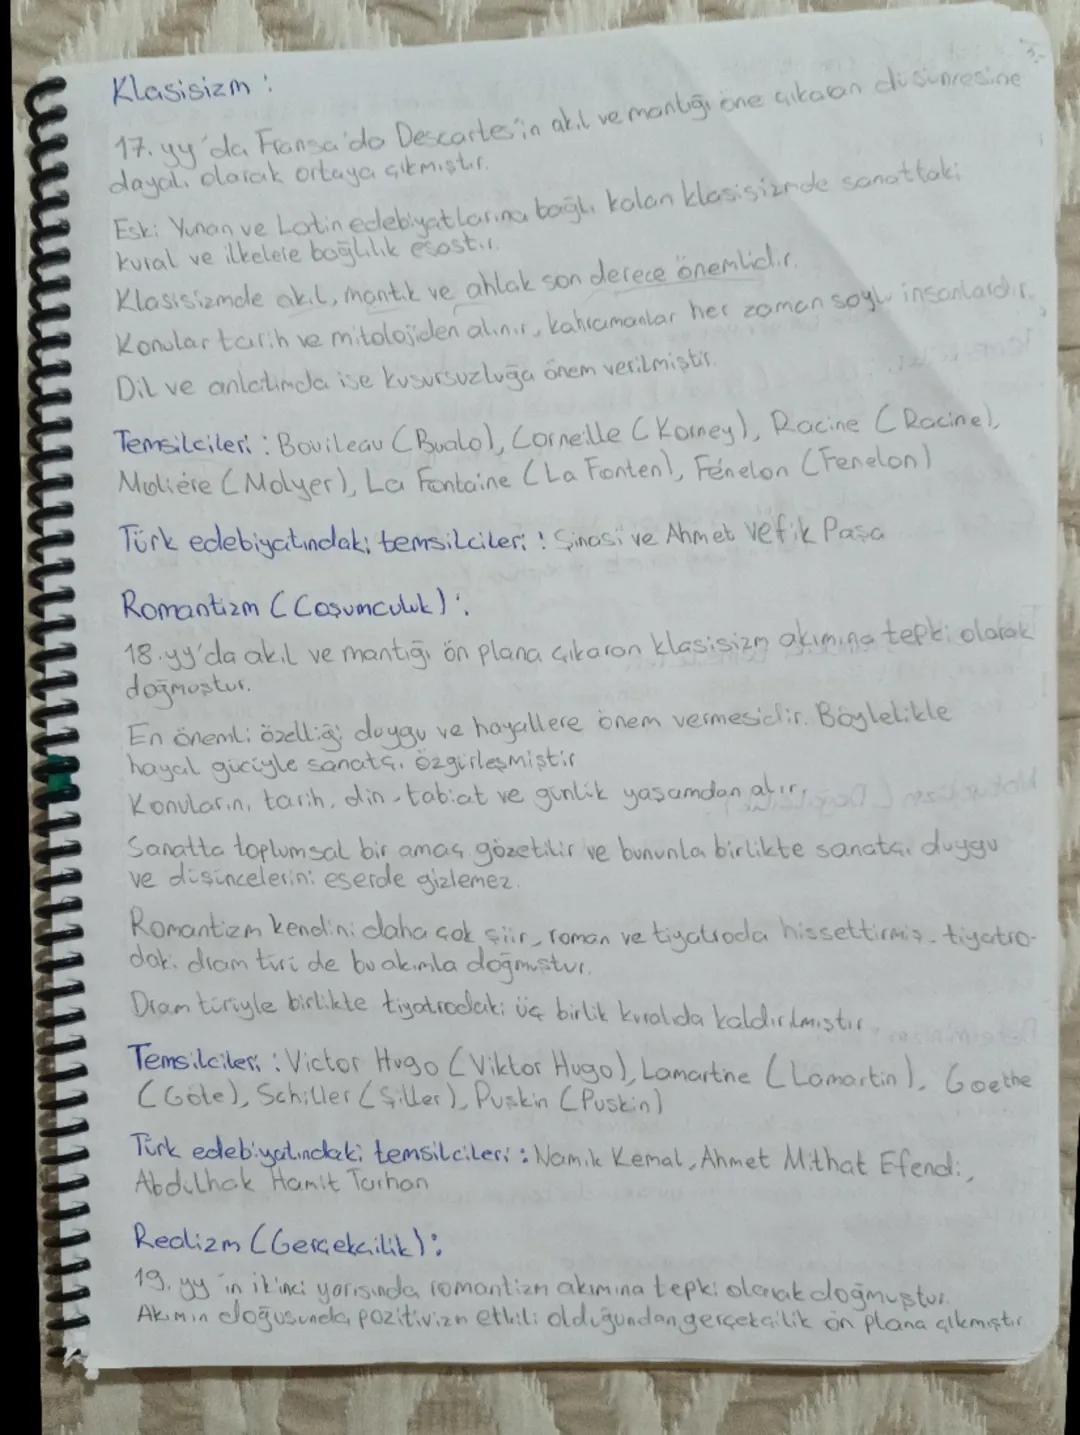 Klasisizm :
17. yy'da Fransa'da Descartes'in akıl ve mantığı öne çıkaran düşüncesine
dayalı olarak ortaya çıkmıştır.
Eski Yunan ve Latin edebiyatlarına bağlı kalan klasisizmde sanattaki
kural ve ilkelere bağlılık esastır.
Klasisizmde akıl, mantık ve ahlak son derece önemlidir.
Konular tarih ve mitolojiden alınır, kahramanlar her zaman soylu insanlardır.
Dil ve anlatımda ise kusursuzluğa önem verilmiştir.
Temsilcileri : Bouileau (Bualo), Corneille (Korney), Racine (Racine),
Moliére (Molyer), La Fontaine (La Fonten), Fénelon (Fenelon)
Türk edebiyatındaki temsilcileri : Şinasi ve Ahmet Vefik Paşa
Romantizm (Coşumculuk) :
18.yy'da akıl ve mantığı ön plana çıkaran klasisizm akımına tepki olarak
doğmuştur.
En önemli özelliği duygu ve hayallere önem vermesidir. Böylelikle
hayal gücüyle sanatçı özgürleşmiştir
Konularını tarih, din, tabiat ve günlük yaşamdan alır.
Sanatta toplumsal bir amaç gözetilir ve bununla birlikte sanatçı duygu
ve düşüncelerini eserde gizlemez.
Romantizm kendini daha çok şiir, roman ve tiyatroda hissettirmiş, tiyatro-
daki dram türü de bu akımla doğmuştur.
Dram türüyle birlikte tiyatrodaki üç birlik kuralıda kaldırılmıştır
Temsilcileri : Victor Hugo (Viktor Hugo), Lamartine (Lamartin), Goethe
(Göte), Schiller (Şiller), Puşkin (Puşkin)
Türk edebiyatındaki temsilcileri : Namık Kemal, Ahmet Mithat Efendi,
Abdülhak Hamit Tarhan
Realizm (Gerçekçilik) :
19. yy'ın ikinci yarısında romantizm akımına tepki olarak doğmuştur.
Akımın doğuşunda pozitivizm etkili olduğundan gerçekçilik ön plana çıkmıştır